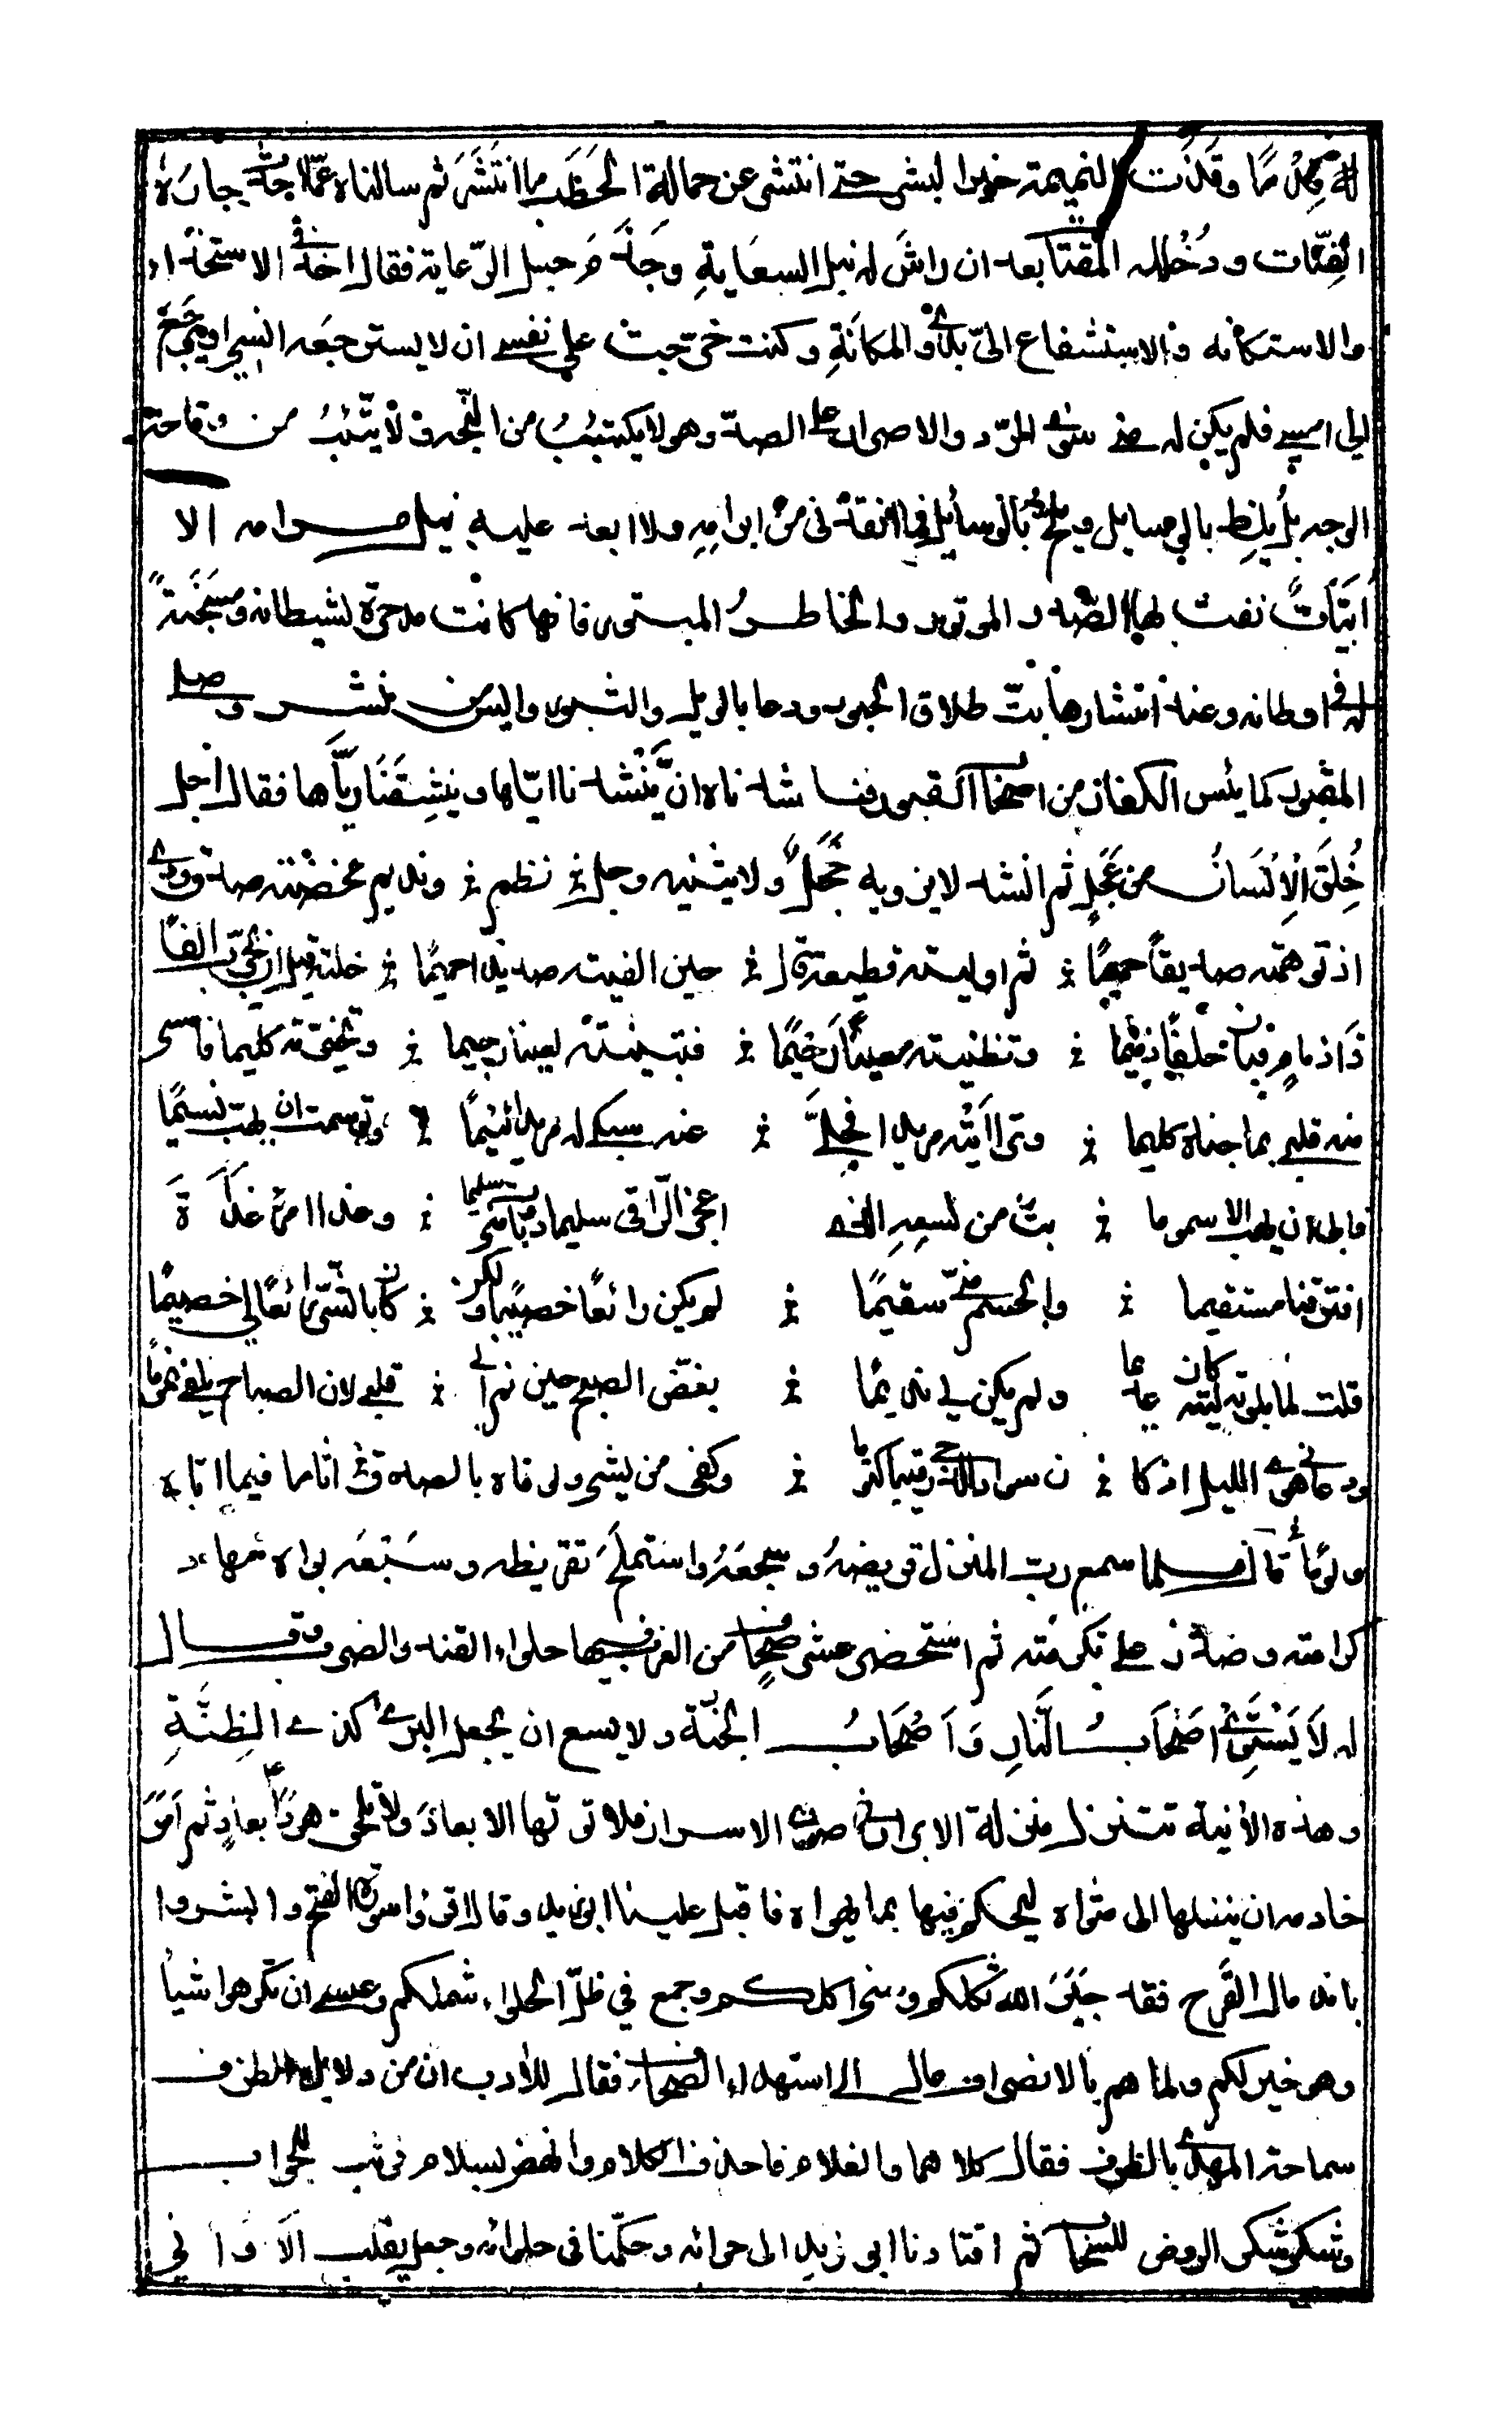 لله قِدْمًا وقذت النميمة خير البشر حتى انتشر عن حمالة الحَطَب ما انتَشَرَ ثم سالناه عمّا احدث جارُه
القتّات ودُخْلله المفتات بعد ان راشَ له نبل السعَاية وجذم حبل الرّعاية فقال اخذ في الاستخذاء
والاستكانه والاستشفاع اليّ بذوي المكانَةِ وكنت حرّجت على نفسي ان لا يسترجعَه انسي او يرجع
الي امسي فلم يكن له مني سوى الردّ والاصرار على الصدّ وهو لا يكتئبُ من النجه ولا يتّئبُ من وقاحة
الوجه بل يلط بالوسايل ويلح بالمسايل فما انقذني من ابرامه ولا ابعد عليه نيل مرامه الا
أبيَاتٌ نفث بها الصّدر الموتور والخاطرُ المبتور فانها كانت مدحرة لشيطانه ومسجَنَةً
له في اوطانه وعند انتشارها بتّ طلاق الحبور ودعا بالويل والثبور وايس من نشر وصلي
المقبور كما يئس الكفار من اصحاب القبور فناشدناه ان يَّنشدنا ايّاها وينشِقَنَا ريّاها فقال اجل
خُلِقَ الْإِنْسَانُ من عَجَلٍ ثم انشد لا يزويه خَجَلٌ ولا يثنيه وجل نظم ونديم محضته صدق ودي
اذ توهمته صديقاً حميمًا ثم اوليته قطيعة قال حين الفيته صديدا حميمًا خلته قبل ان يجرّب الفًا
ذَا ذمامٍ فبان خلفًا ذميمًا وتظنيته معينًا رَحيمًا فتبينته لعينا رجيما وتخيّرته كليما فامسى
منه قلبي بما جناه كليما وتراءَيته مريدا فجلّى عنه سبكي له مريدا لئيمًا وتوسمت ان يهبّ نسيمًا
فابى ان يهبّ الا سموما بتّ من لسعه الذي اعجز الرّاقي سليما وبات مني سليما وغدا امره غداةَ
افترقنا مستقيما والجسم منّي سقيمًا لم يكن رائعًا خصيبًا ولكن كان بالشّرّ رائعًا لي خصيمًا
قلت لمّا بلوته ليته كان عديما ولم يكن لي نديمًا بغّض الصبح حين نمّ الى قلبي لان الصباح يلفى نمومًا
ودعاني الى هوى الليل اذ كا ن سواد الدجى رقيبا كتوما وكفى من يشي ولو فاه بالصدق اثاما فيما اتاه
ولوما قال فلما سمع ربّ المنزل قريضهُ وسجعَهُ واستملَحَ تقريظه وسَبْعَه بوأه مهاد
كرامته وصدّره على تكرمته ثم استحضر عشر صحاف من الغرب فيها حلواء القند والضرب وقال
له لَا يَسْتَوِي أَصْحَابُ النَّارِ وَأَصْحَابُ الجَنَّة ولا يسع ان يجعل البريّ كذي الظِنَّةِ
وهذه الأنية تتنزل منزلة الابرار في صون الاسرار فلا تولها الابعاد ولا تلحق هودًا بعادٍ ثم امر
خادمه ان ينقلها الى مثواه ليحكم فيها بما يهواه فاقبل علينا ابو زيد وقال اقرؤا سورة الفتح وابشروا
باندمال القَرح فقد جبَرَ الله ثكلكم وسنى اكلكم وجمع في ظلّ الحلواء شملكم وعسى ان تكرهوا شيأ
وهو خير لكم ولما همّ بالانصراف مال الى استهداء الصحاف فقال للأدب ان من دلايل الظرف
سماحة المهدي بالظرف فقال كلاهما والغلام فاحذف الكلام وانهض بسلام فوثب للجواب
وشكر شكر الروض للسحاب ثم اقتادنا ابو زيد الى حوائه وحكّمنا في حلوائه وجعل يقلب الاواني